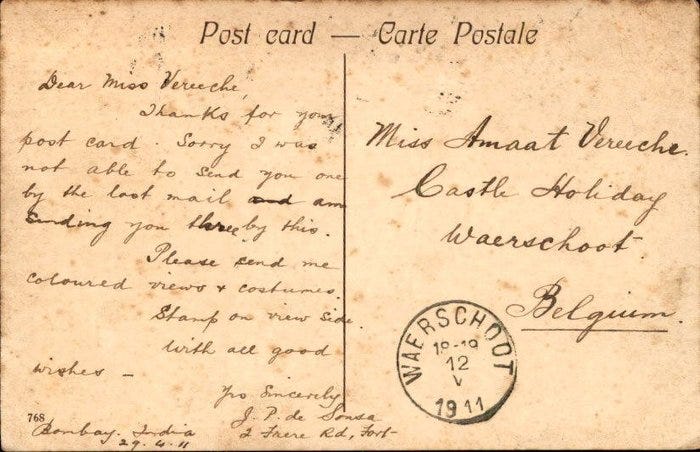 Post card — Carte Postale
Dear Miss Vereeche,
Thanks for your
post card. Sorry I was
not able to send you one
by the last mail and am
sending you three by this.
Please send me
coloured views & costumes.
Stamp on view side.
With all good
wishes –
Yrs Sincerely
J. P. de Sousa
2 Frere Rd, Fort
768
Bombay. India
29.4.11
Miss Amaat Vereeche.
Castle Holiday
Waerschoot.
Belgium.
WAERSCHOOT
18-19
12
V
1911